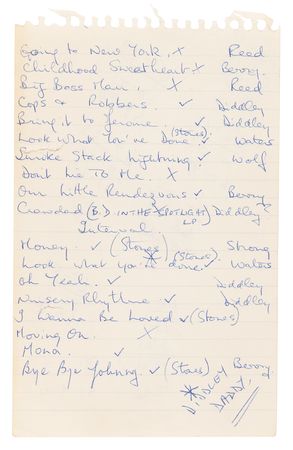 Going to New York. X Reed
Childhood Sweetheart X Berry.
Big Boss Man. X Reed
Cops & Robbers. ✓ Diddley
Bring it to Jerome. ✓ Diddley
Look What You've Done. ✓ (Stones) Waters
Smoke Stack Lightning. ✓ Wolf
Dont Lie To Me. X
Our Little Rendezvous ✓ Berry
Crawdad (B.D. IN THE SPOTLIGHT LP) Diddley
Interval.
Money. ✓ (Stones) Strong
Look what you've done. ✓ (Stones) Waters
Oh Yeah. ✓ Diddley
Nursery Rhyme ✓ Diddley
I Wanna Be Loved ✓ (Stones)
Moving On. X
Mona. ✓
Bye Bye Johnny. ✓ (Stones) Berry
* DIDDLEY DADDY!